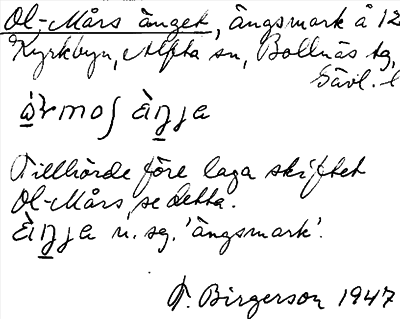 Ol-Mårs änget, ängsmark å 12
Kyrkbyn, Alfta sn, Bollnäs tg,
Gävl. l
Tillhörde före laga skiftet
Ol-Mårs, se detta.
n. sg. 'ängsmark'.
F. Birgerson 1947